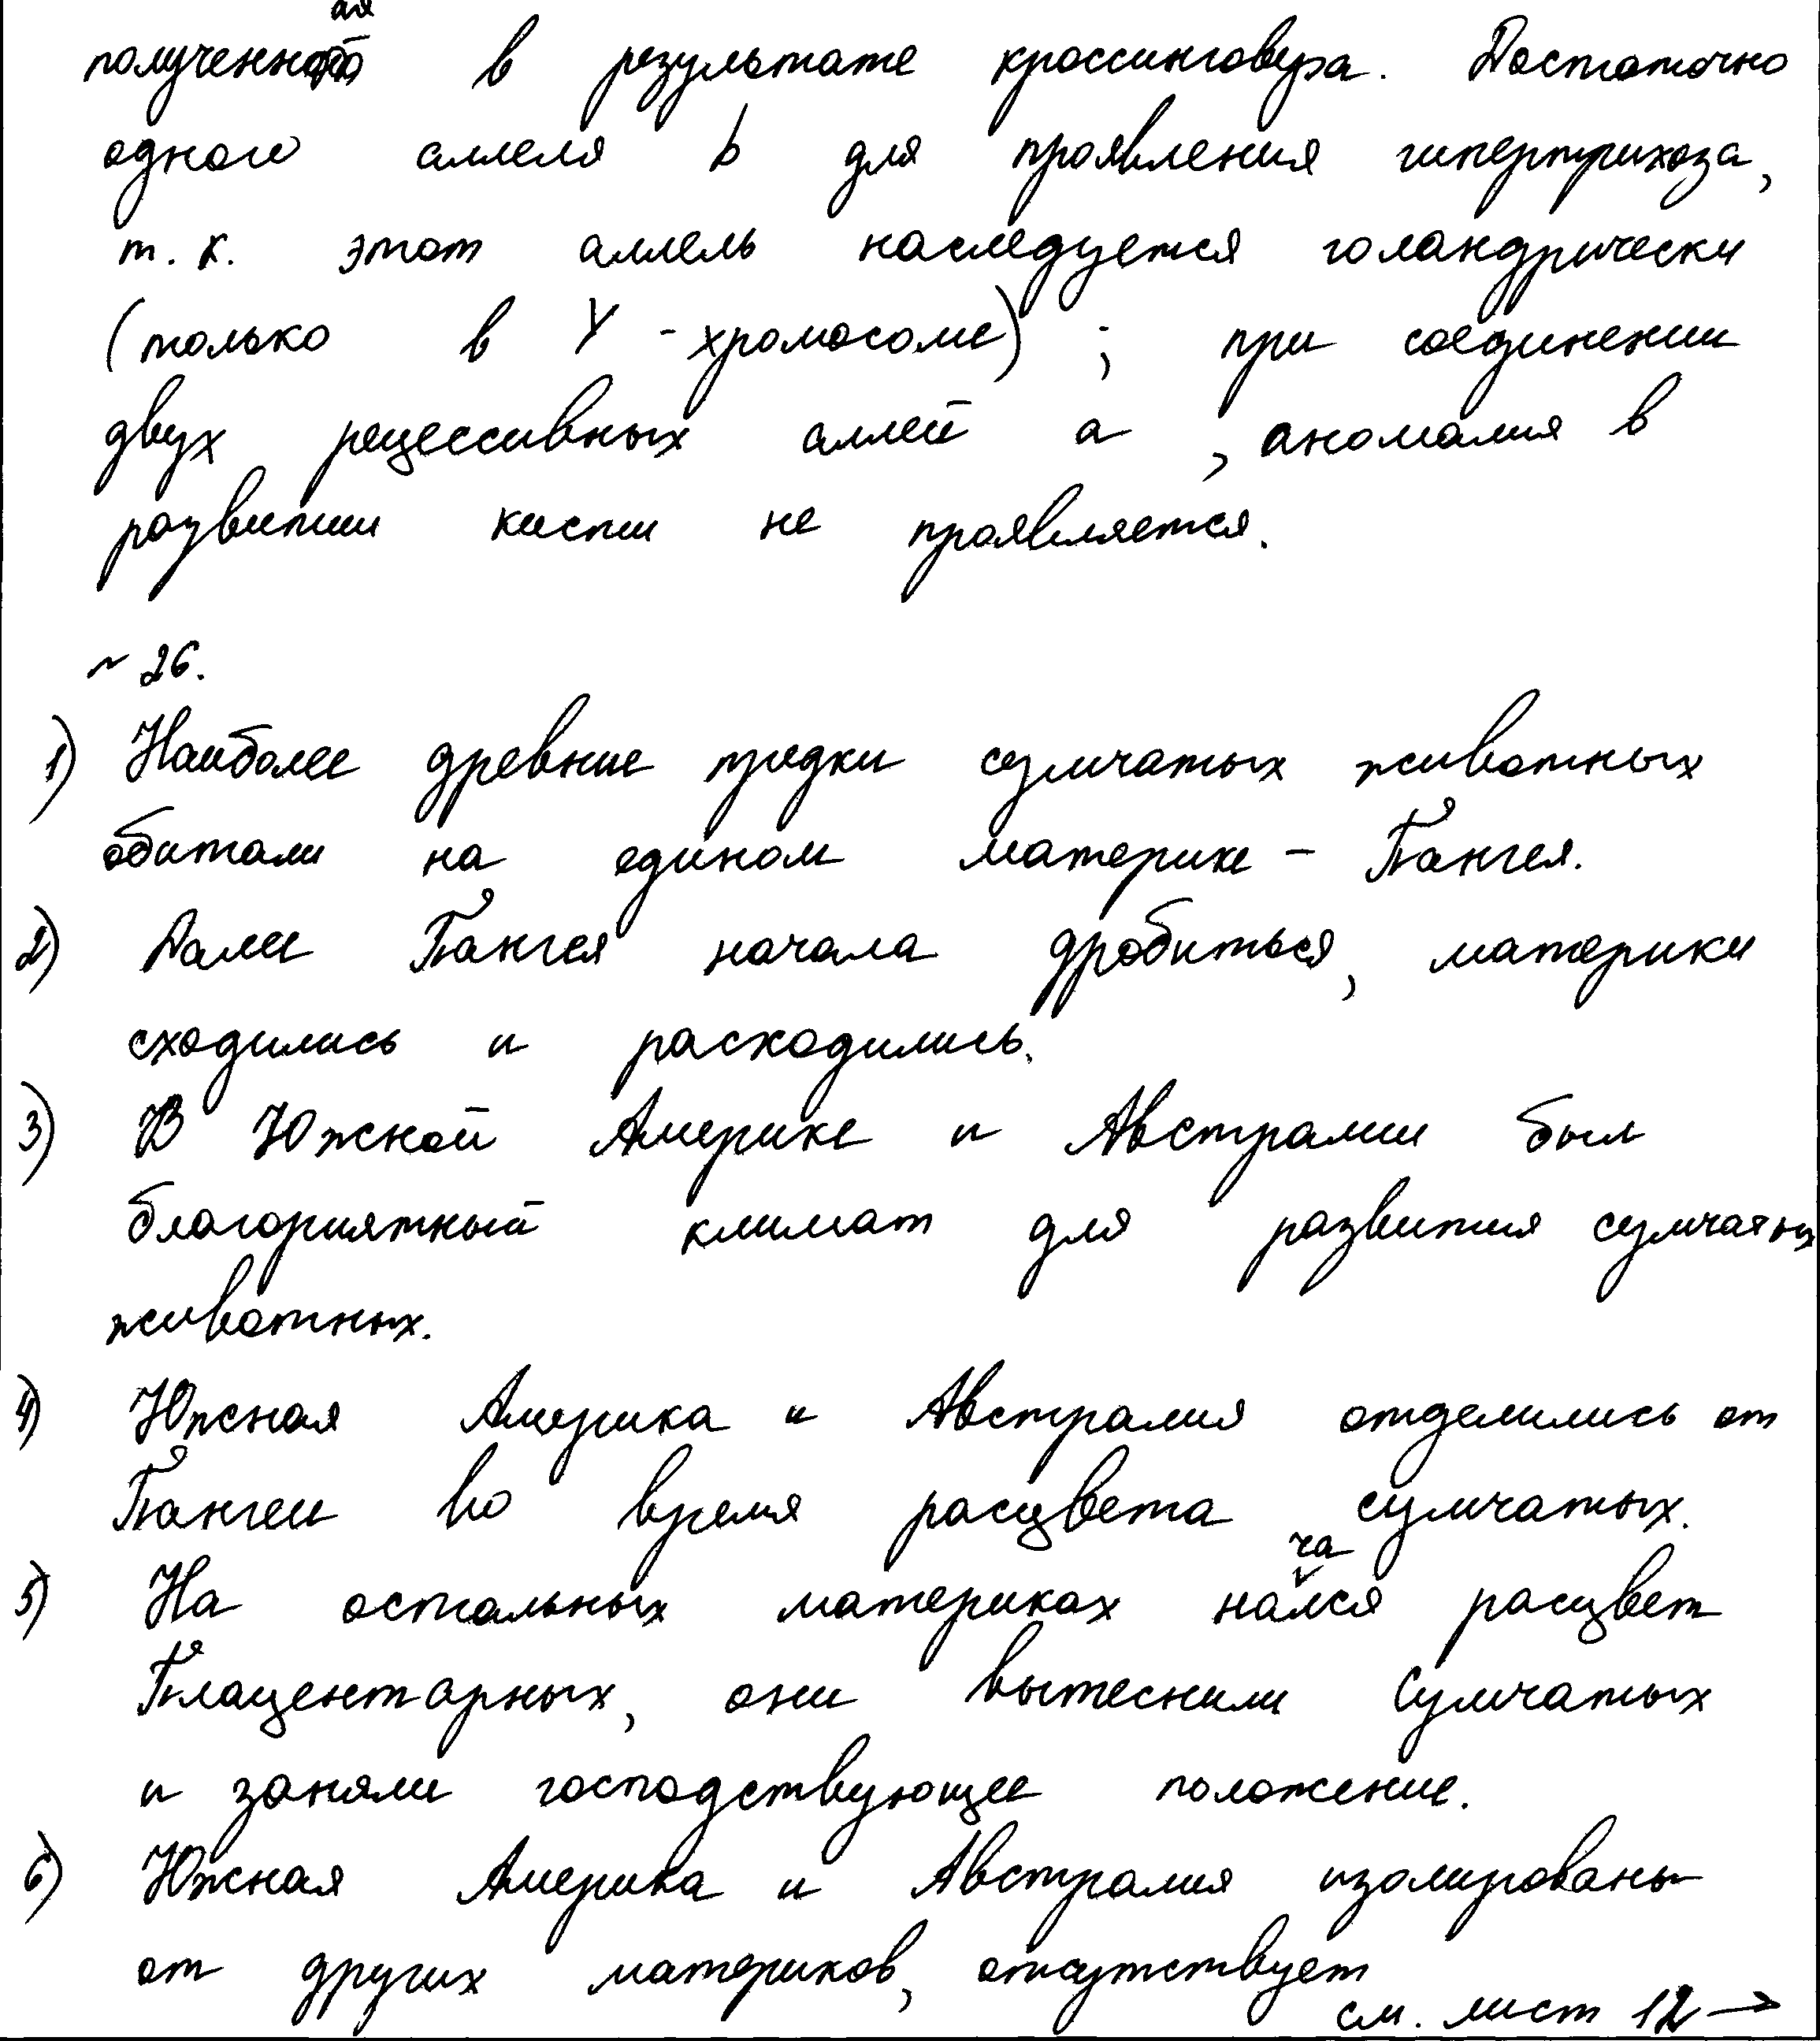 полученная в результате кроссинговера. Достаточно
одного аллеля b для проявления гипертрихоза,
т. к. этот аллель наследуется голандрически
(только в Y - хромосоме) ; при соединении
двух рецессивных аллей a , аномалия в
развитии кисти не проявляется.
~ 26.
1) Наиболее древние предки сумчатых животных
обитали на едином материке – Пангея.
2) Далее Пангея начала дробиться, материки
сходились и расходились.
3) В Южной Америке и Австралии был
благориятный климат для развития сумчатых
животных.
4) Южная Америка и Австралия отделились от
Пангеи во время расцвета сумчатых.
5) На остальных материках начался расцвет
Плацентарных, они вытеснили Сумчатых
и заняли господствующее положение.
6) Южная Америка и Австралия изолированы
от других материков, отсутствует
см. лист 12 →